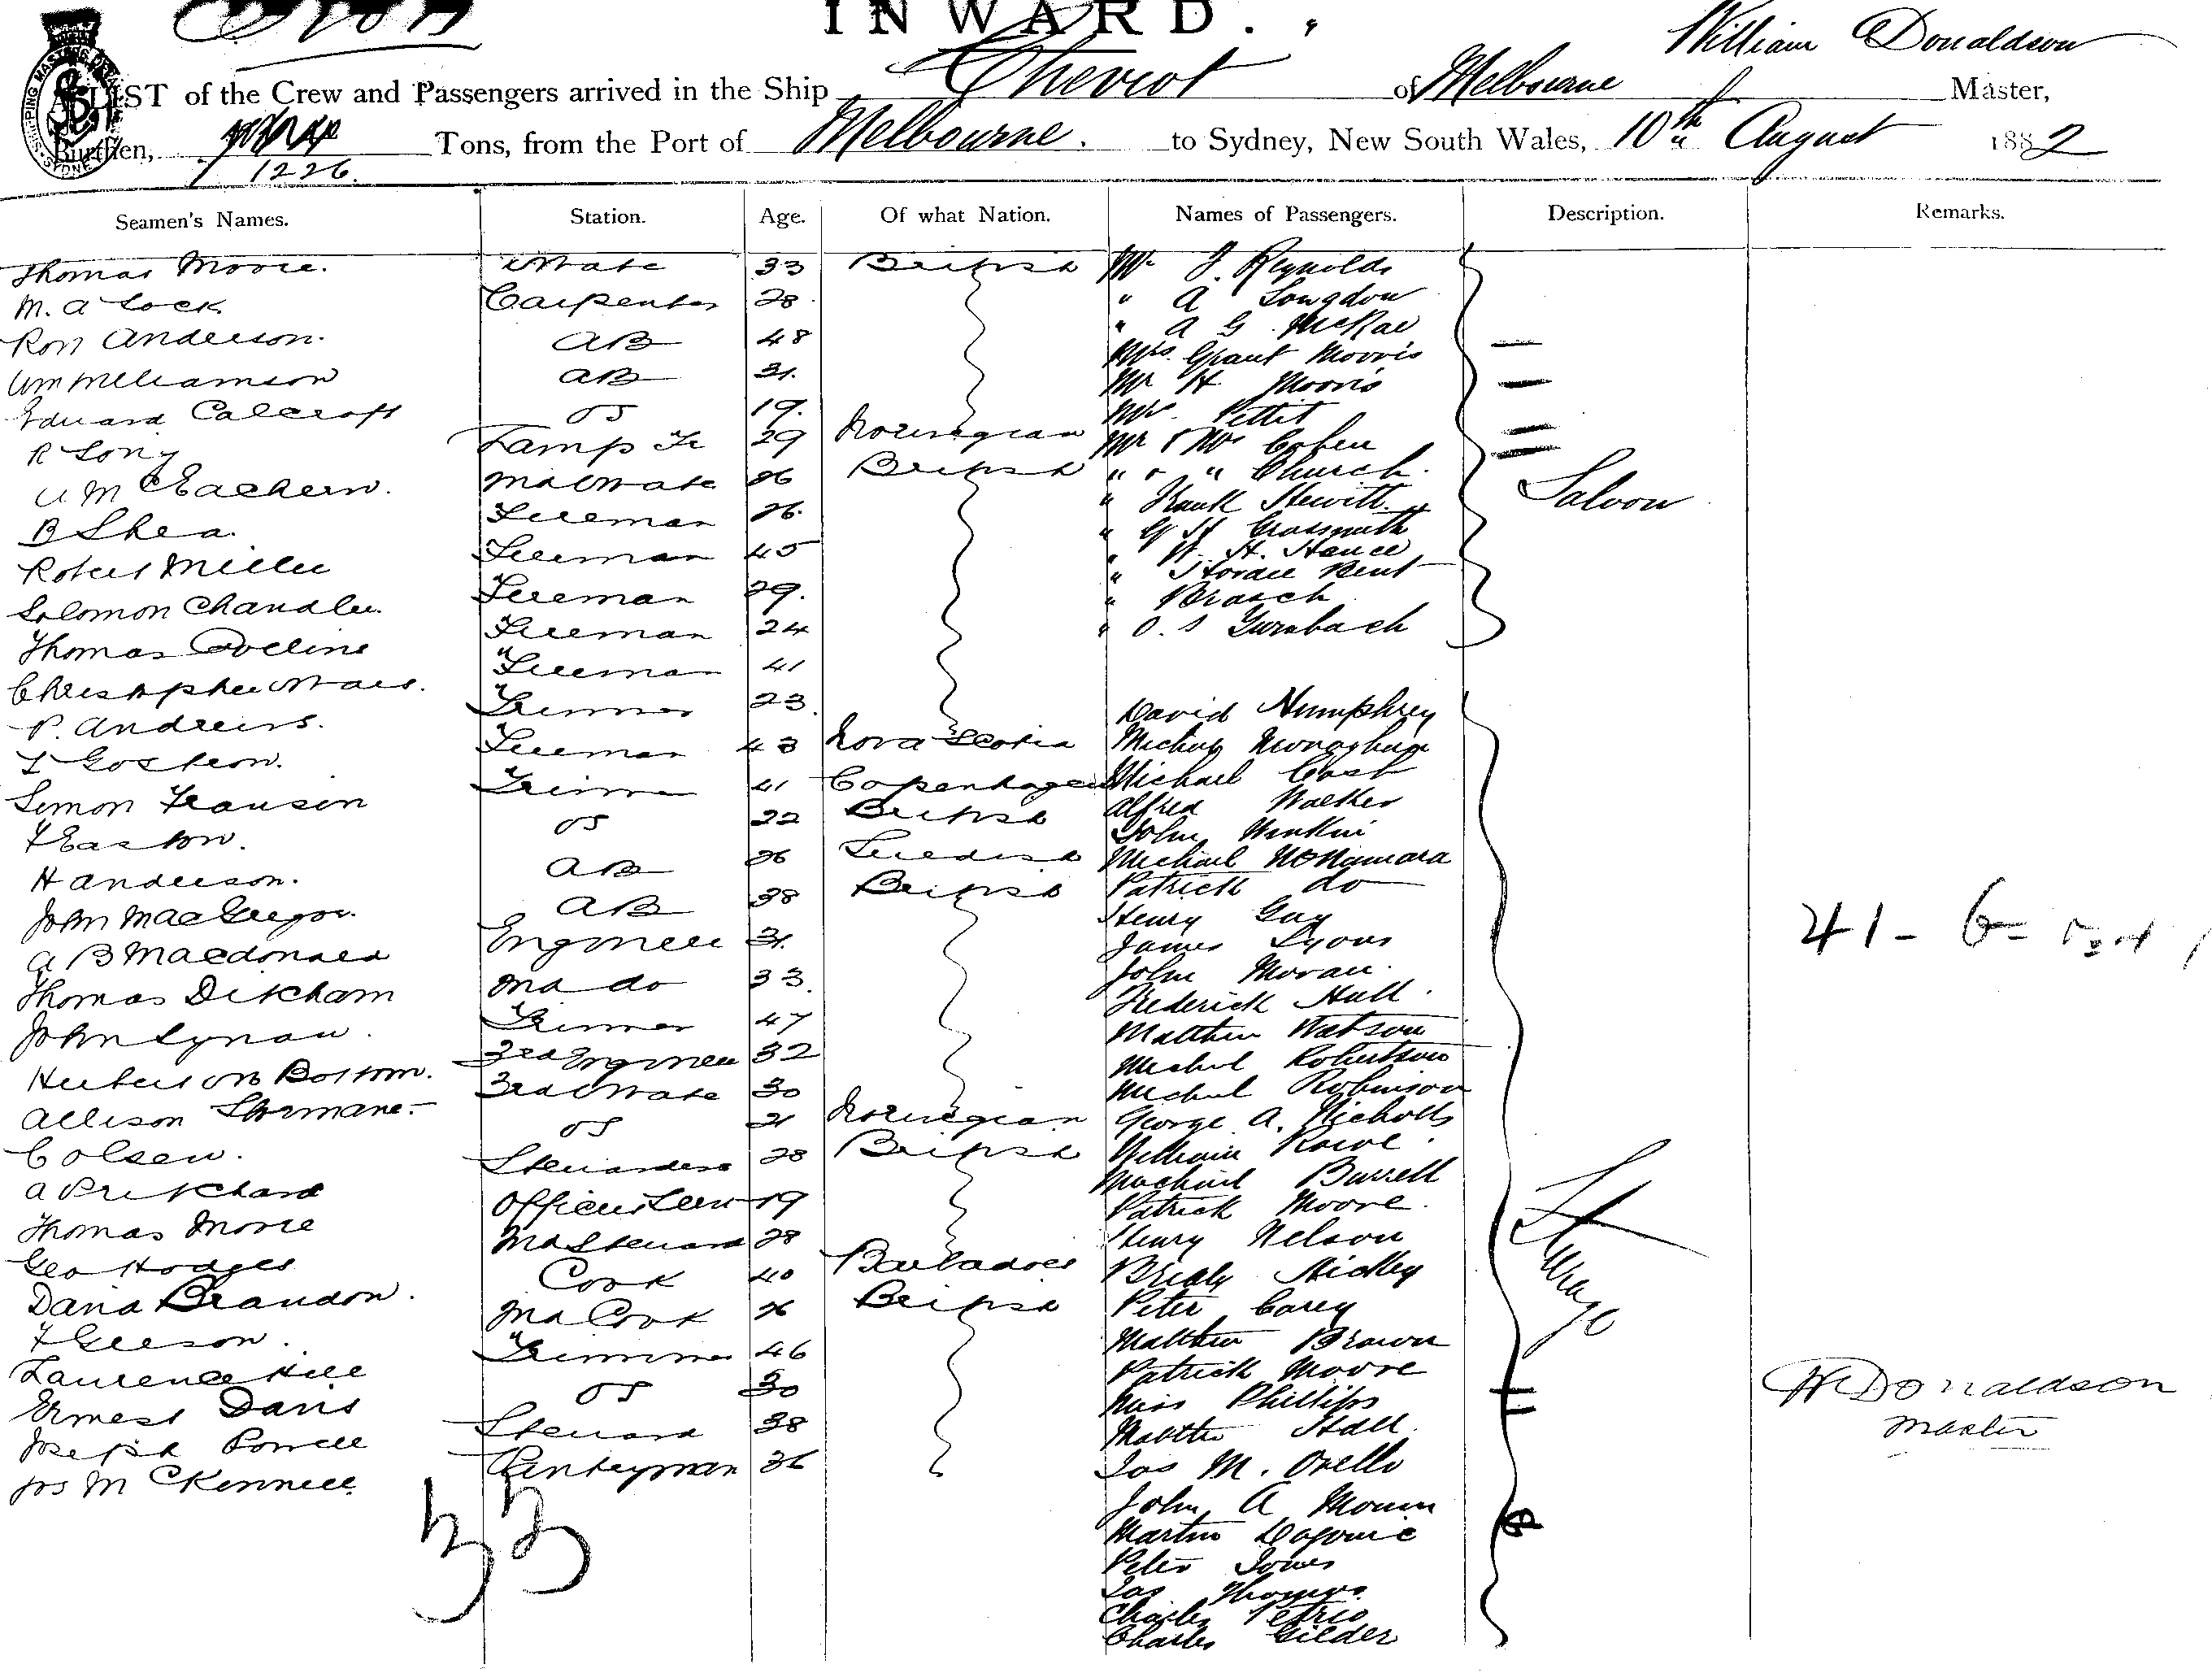 INWARD.
William Donaldson
LIST of the Crew and Passengers arrived in the Ship Cheviot of Melbourne Master,
Burthen, 1226. Tons, from the Port of Melbourne. to Sydney, New South Wales, 10th August 1882
Seamen's Names. Station. Age. Of what Nation. Names of Passengers. Description. Remarks.
Thomas Moore. Mate 33 British Mr J. Reynolds
M. A Lock Carpenter 28 " A Longdon
Anderson. AB 48 " A G McRae
Wm Williamson AB 31. Mrs. Grant Morris
Edward Calcroft OS 19. Mr H Morris
R Long Lamp Tr 29 Norwegian Mr. Pettit
McEachern. 2nd Mate 26 British Mr & Mrs Cohen
B Shea. Fireman 26. " " " Church.
Robert Miller Fireman 45 " Frank Hewitt
Solomon Chandler. Fireman 29. " G H Crossmuth
Thomas Fireman 24 " H. H. Hance
Christopher Fireman 41 " Horace Bent
P. Andrews. Trimmer 23. " Brasch
Fireman 43 Nova Scotia " O. S
Simon Fransen Trimmer 41 Copenhagen
Saloon
F Easton. OS 22 British David Humphrey
H Anderson. AB 26 Swedish
John MacGregor. AB 38 British Michael Cash
A B Macdonald Engineer 31. Alfred Walker
Thomas Dickham 2nd do 33. John
John Lynan. Trimmer 47 Michael McNamara
Herbert Bottom. 3rd Engineer 32 Patrick do
Allison 3rd Mate 30 Henry Guy
C Olsen. OS 21 Norwegian James Lyons
A Pritchard Stewardess 28 British John Moran.
Thomas Moore Officers Serv 19 Frederick Hull.
Geo Hodges 2nd Steward 28 Matthew Watson
David Brandon. Cook 40 Barbadoes Robertson
F Gleeson. 2nd Cook 26 British Robinson
Laurence Hill Trimmer 46 George A. Nicholls
Ernest Davis OS 30 William Rowe.
Joseph Powell Steward 38 Michael Burrell
Jos McKennell Pantryman 36 Patrick Moore.
33
Henry Nelson
Peter Carey
Matthew Brown
Patrick Moore
Miss Phillips
Matthew Hall.
Jas M.
John A
Martin
Peter Jones
Jas Thomas
Charles Petrie
Charles Gilder
Steerage
41 -
W Donaldson
Master